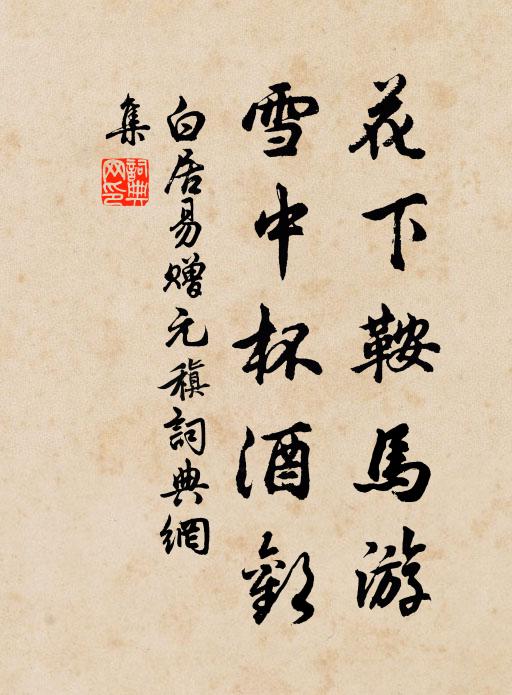 花下鞍馬游
雪中杯酒歡
白居易赠元稹詞典網
集
詞典
网印